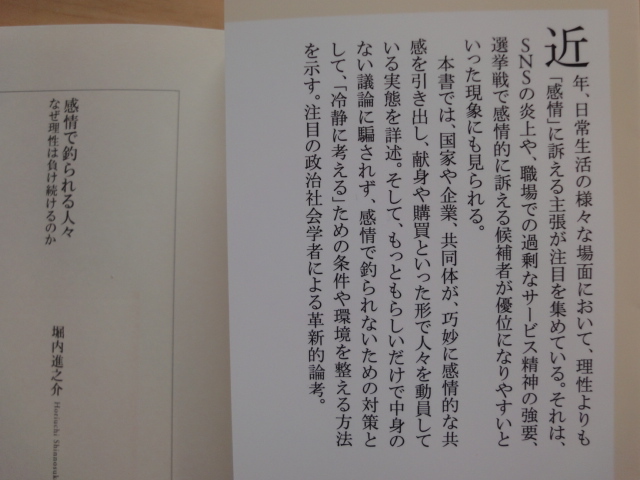 近年、日常生活の様々な場面において、理性よりも
「感情」に訴える主張が注目を集めている。それは、
SNSの炎上や、職場での過剰なサービス精神の強要、
選挙戦で感情的に訴える候補者が優位になりやすいと
いった現象にも見られる。
本書では、国家や企業、共同体が、巧妙に感情的な共
感を引き出し、献身や購買といった形で人々を動員して
いる実態を詳述。そして、もっともらしいだけで中身の
ない議論に騙されず、感情で釣られないための対策と
して、「冷静に考える」ための条件や環境を整える方法
を示す。注目の政治社会学者による革新的論考。
感情で釣られる人々
なぜ理性は負け続けるのか
堀内進之介
Horiuchi Shinnosuk